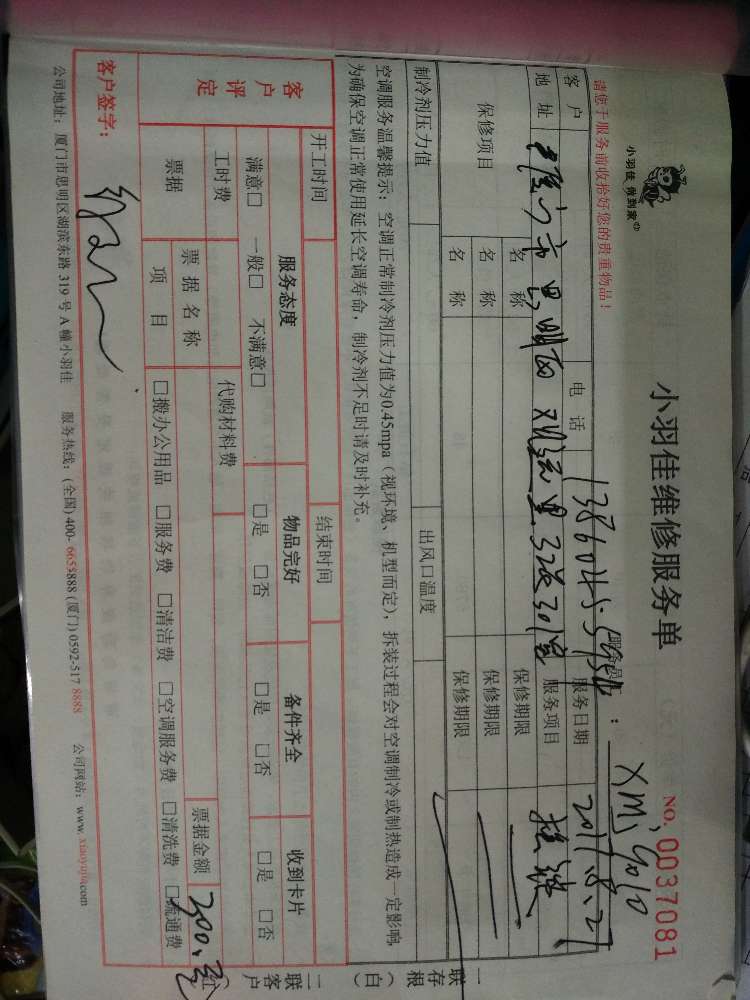 小羽佳 做到家
小羽佳维修服务单
NO. 0037081
服务员：XMJ9010
请您于服务前收拾好您的贵重物品！
客户 电话 服务日期 2017.8.27
地址 厦门市思明区 服务项目
保修项目 名称 保修期限
名称 保修期限
名称 保修期限
制冷剂压力值 出风口温度
空调服务温馨提示：空调正常制冷剂压力值为0.45mpa（视环境、机型而定），拆装过程会对空调制冷或制热造成一定影响，
为确保空调正常使用延长空调寿命，制冷剂不足时请及时补充。
开工时间 结束时间
客户评定 服务态度 物品完好 备件齐全 收到卡片
满意□ 一般□ 不满意□ □是 □否 □是 □否 □是 □否
工时费 代购材料费
票据 票据名称 票据金额 200.
项目 □搬办公用品 □服务费 □清洁费 □空调服务费 □清洗费 □疏通费
客户签字：
公司地址：厦门市思明区湖滨东路 319 号 A 幢小羽佳 服务热线：(全国) 400-6655888 (厦门) 0592-517 8888 公司网站：www.xiaoyujia.com
一联存根（白）
二联客户（红）